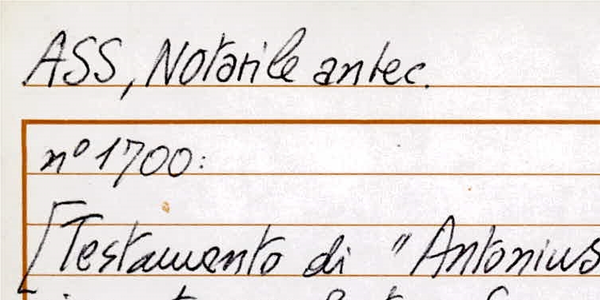 ASS, Notarile antec.
n° 1700:
[Testamento di "Antonius